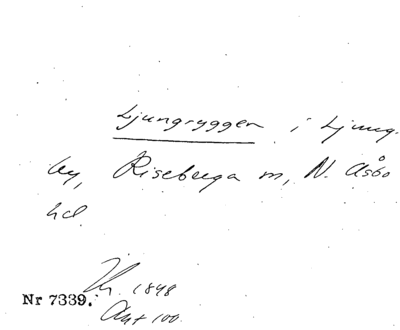 Ljungryggen i Ljung-
by, Riseberga sn, N. Åsbo
hd.
1848
Nr 7339. Akt 100